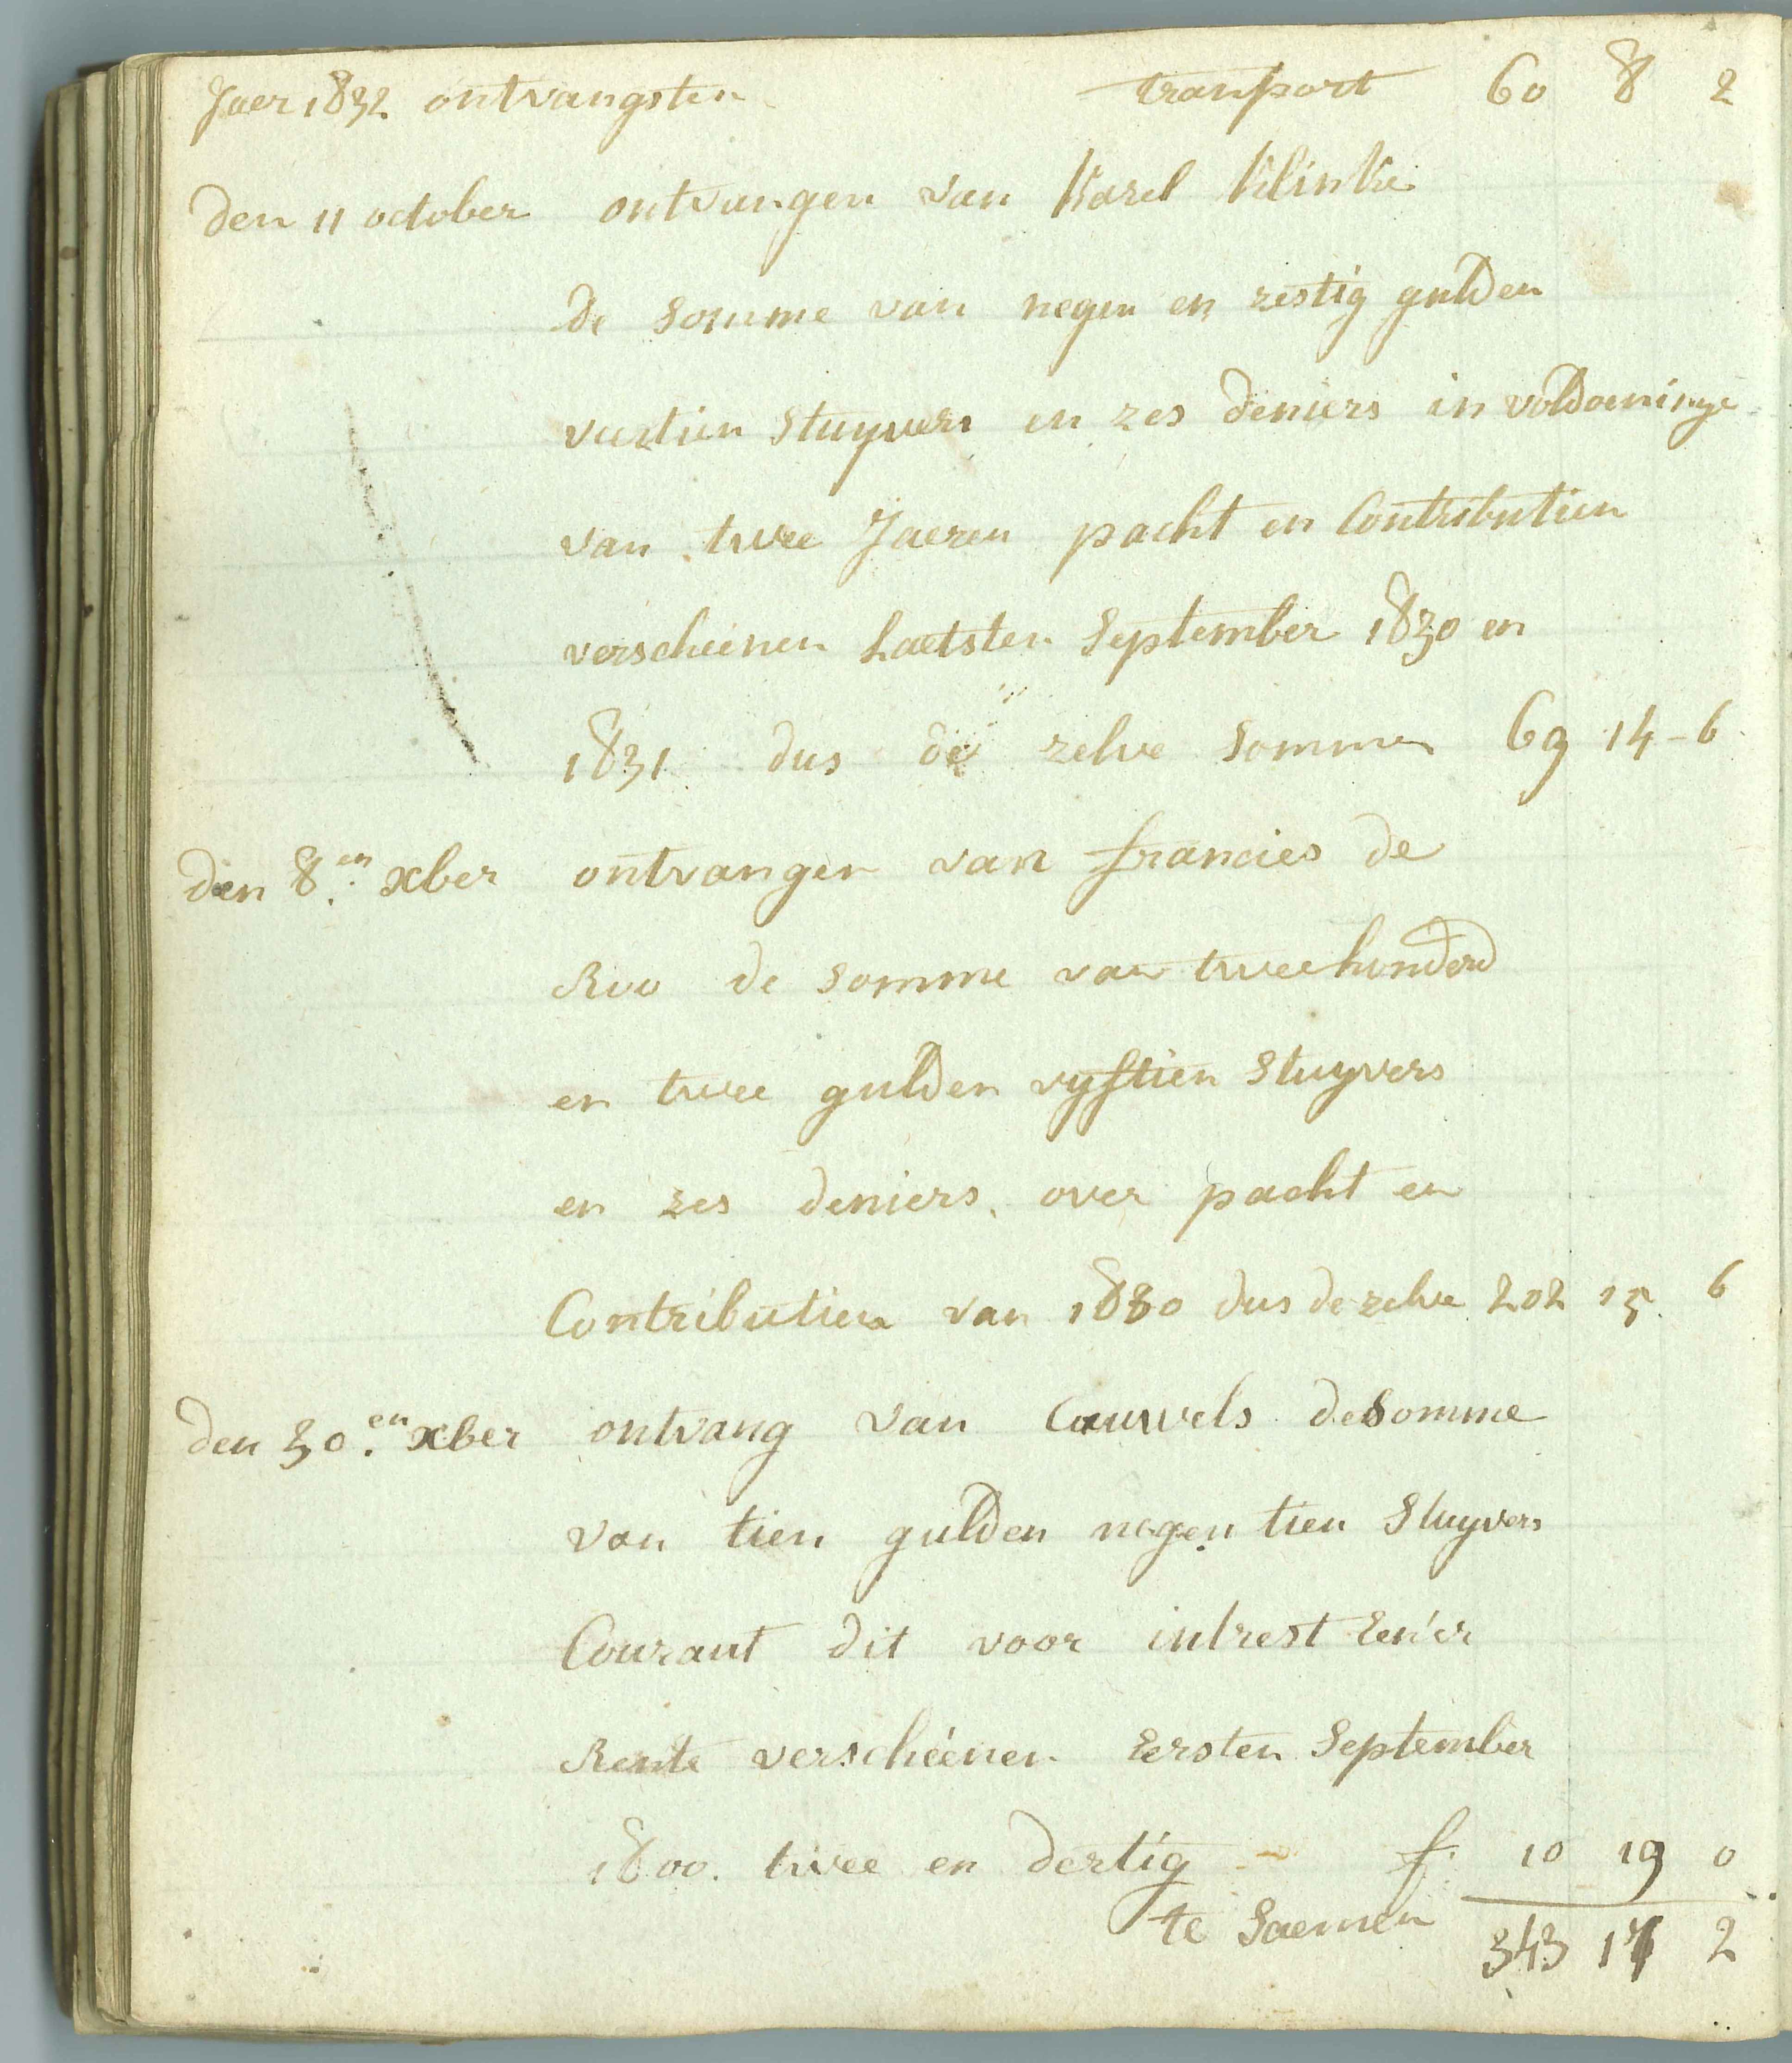 Jaer 1832 ontvangsten transport 60 8 2
den 11 october ontvangen van Karel Klinke
de somme van negen en zestig gulden
veertien Stuyvers en zes deniers in voldoeninge
van twee Jaeren pacht en Contributien
verscheenen Laetsten September 1830 en
1831 dus de zelve somme 69 14 - 6
den 8.en xber ontvangen van francies de
Roo de somme van tweehonderd
en twee gulden vyftien Stuyvers
en zes deniers, over pacht en
Contributien van 1830 dus de zelve 202 15. 6
den 30.en xber ontvang van Cauwels de Somme
van tien gulden negen tien Stuyvers
Courant dit voor intrest Een'er
Rente verschéenen Eersten September
1800. twee en dertig - f. 10 19 0
te Saemen 343 17 2